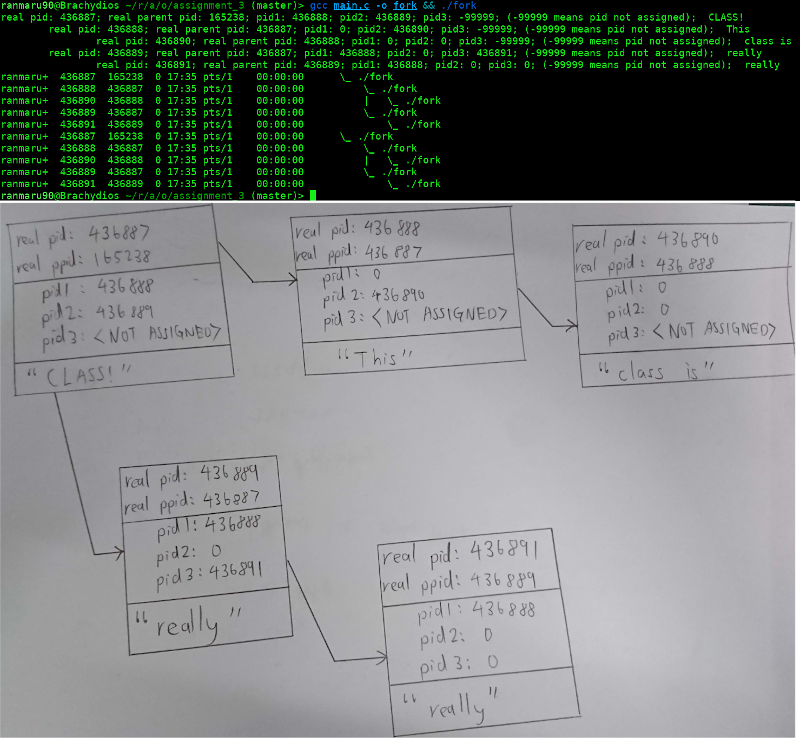 ranmaru90@Brachydios ~/r/a/o/assignment_3 (master)> gcc main.c -o fork && ./fork
real pid: 436887; real parent pid: 165238; pid1: 436888; pid2: 436889; pid3: -99999; (-99999 means pid not assigned);  CLASS!
real pid: 436888; real parent pid: 436887; pid1: 0; pid2: 436890; pid3: -99999; (-99999 means pid not assigned);  This
real pid: 436890; real parent pid: 436888; pid1: 0; pid2: 0; pid3: -99999; (-99999 means pid not assigned);  class is
real pid: 436889; real parent pid: 436887; pid1: 436888; pid2: 0; pid3: 436891; (-99999 means pid not assigned);  really
real pid: 436891; real parent pid: 436889; pid1: 436888; pid2: 0; pid3: 0; (-99999 means pid not assigned);  really
ranmaru+  436887  165238  0 17:35 pts/1    00:00:00      \_ ./fork
ranmaru+  436888  436887  0 17:35 pts/1    00:00:00          \_ ./fork
ranmaru+  436890  436888  0 17:35 pts/1    00:00:00          |   \_ ./fork
ranmaru+  436889  436887  0 17:35 pts/1    00:00:00          \_ ./fork
ranmaru+  436891  436889  0 17:35 pts/1    00:00:00              \_ ./fork
ranmaru+  436887  165238  0 17:35 pts/1    00:00:00      \_ ./fork
ranmaru+  436888  436887  0 17:35 pts/1    00:00:00          \_ ./fork
ranmaru+  436890  436888  0 17:35 pts/1    00:00:00          |   \_ ./fork
ranmaru+  436889  436887  0 17:35 pts/1    00:00:00          \_ ./fork
ranmaru+  436891  436889  0 17:35 pts/1    00:00:00              \_ ./fork
ranmaru90@Brachydios ~/r/a/o/assignment_3 (master)>
real pid: 436887
real ppid: 165238
pid1: 436888
pid2: 436889
pid3: <NOT ASSIGNED>
"CLASS!"
real pid: 436888
real ppid: 436887
pid1: 0
pid2: 436890
pid3: <NOT ASSIGNED>
"This"
real pid: 436890
real ppid: 436888
pid1: 0
pid2: 0
pid3: <NOT ASSIGNED>
"class is"
real pid: 436889
real ppid: 436887
pid1: 436888
pid2: 0
pid3: 436891
"really"
real pid: 436891
real ppid: 436889
pid1: 436888
pid2: 0
pid3: 0
"really"